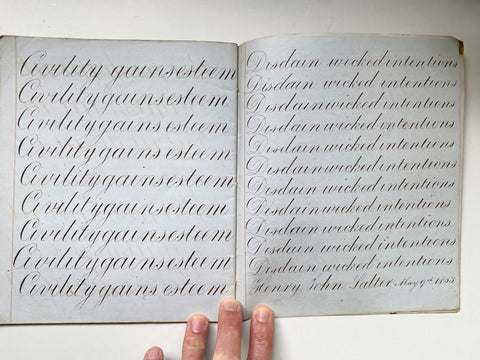 Civility gains esteem
Civility gains esteem
Civility gains esteem
Civility gains esteem
Civility gains esteem
Civility gains esteem
Civility gains esteem
Civility gains esteem
Civility gains esteem
Disdain wicked intentions
Disdain wicked intentions
Disdain wicked intentions
Disdain wicked intentions
Disdain wicked intentions
Disdain wicked intentions
Disdain wicked intentions
Disdain wicked intentions
Disdain wicked intentions
Disdain wicked intentions
Disdain wicked intentions
Henry John Salter May 9th 1855